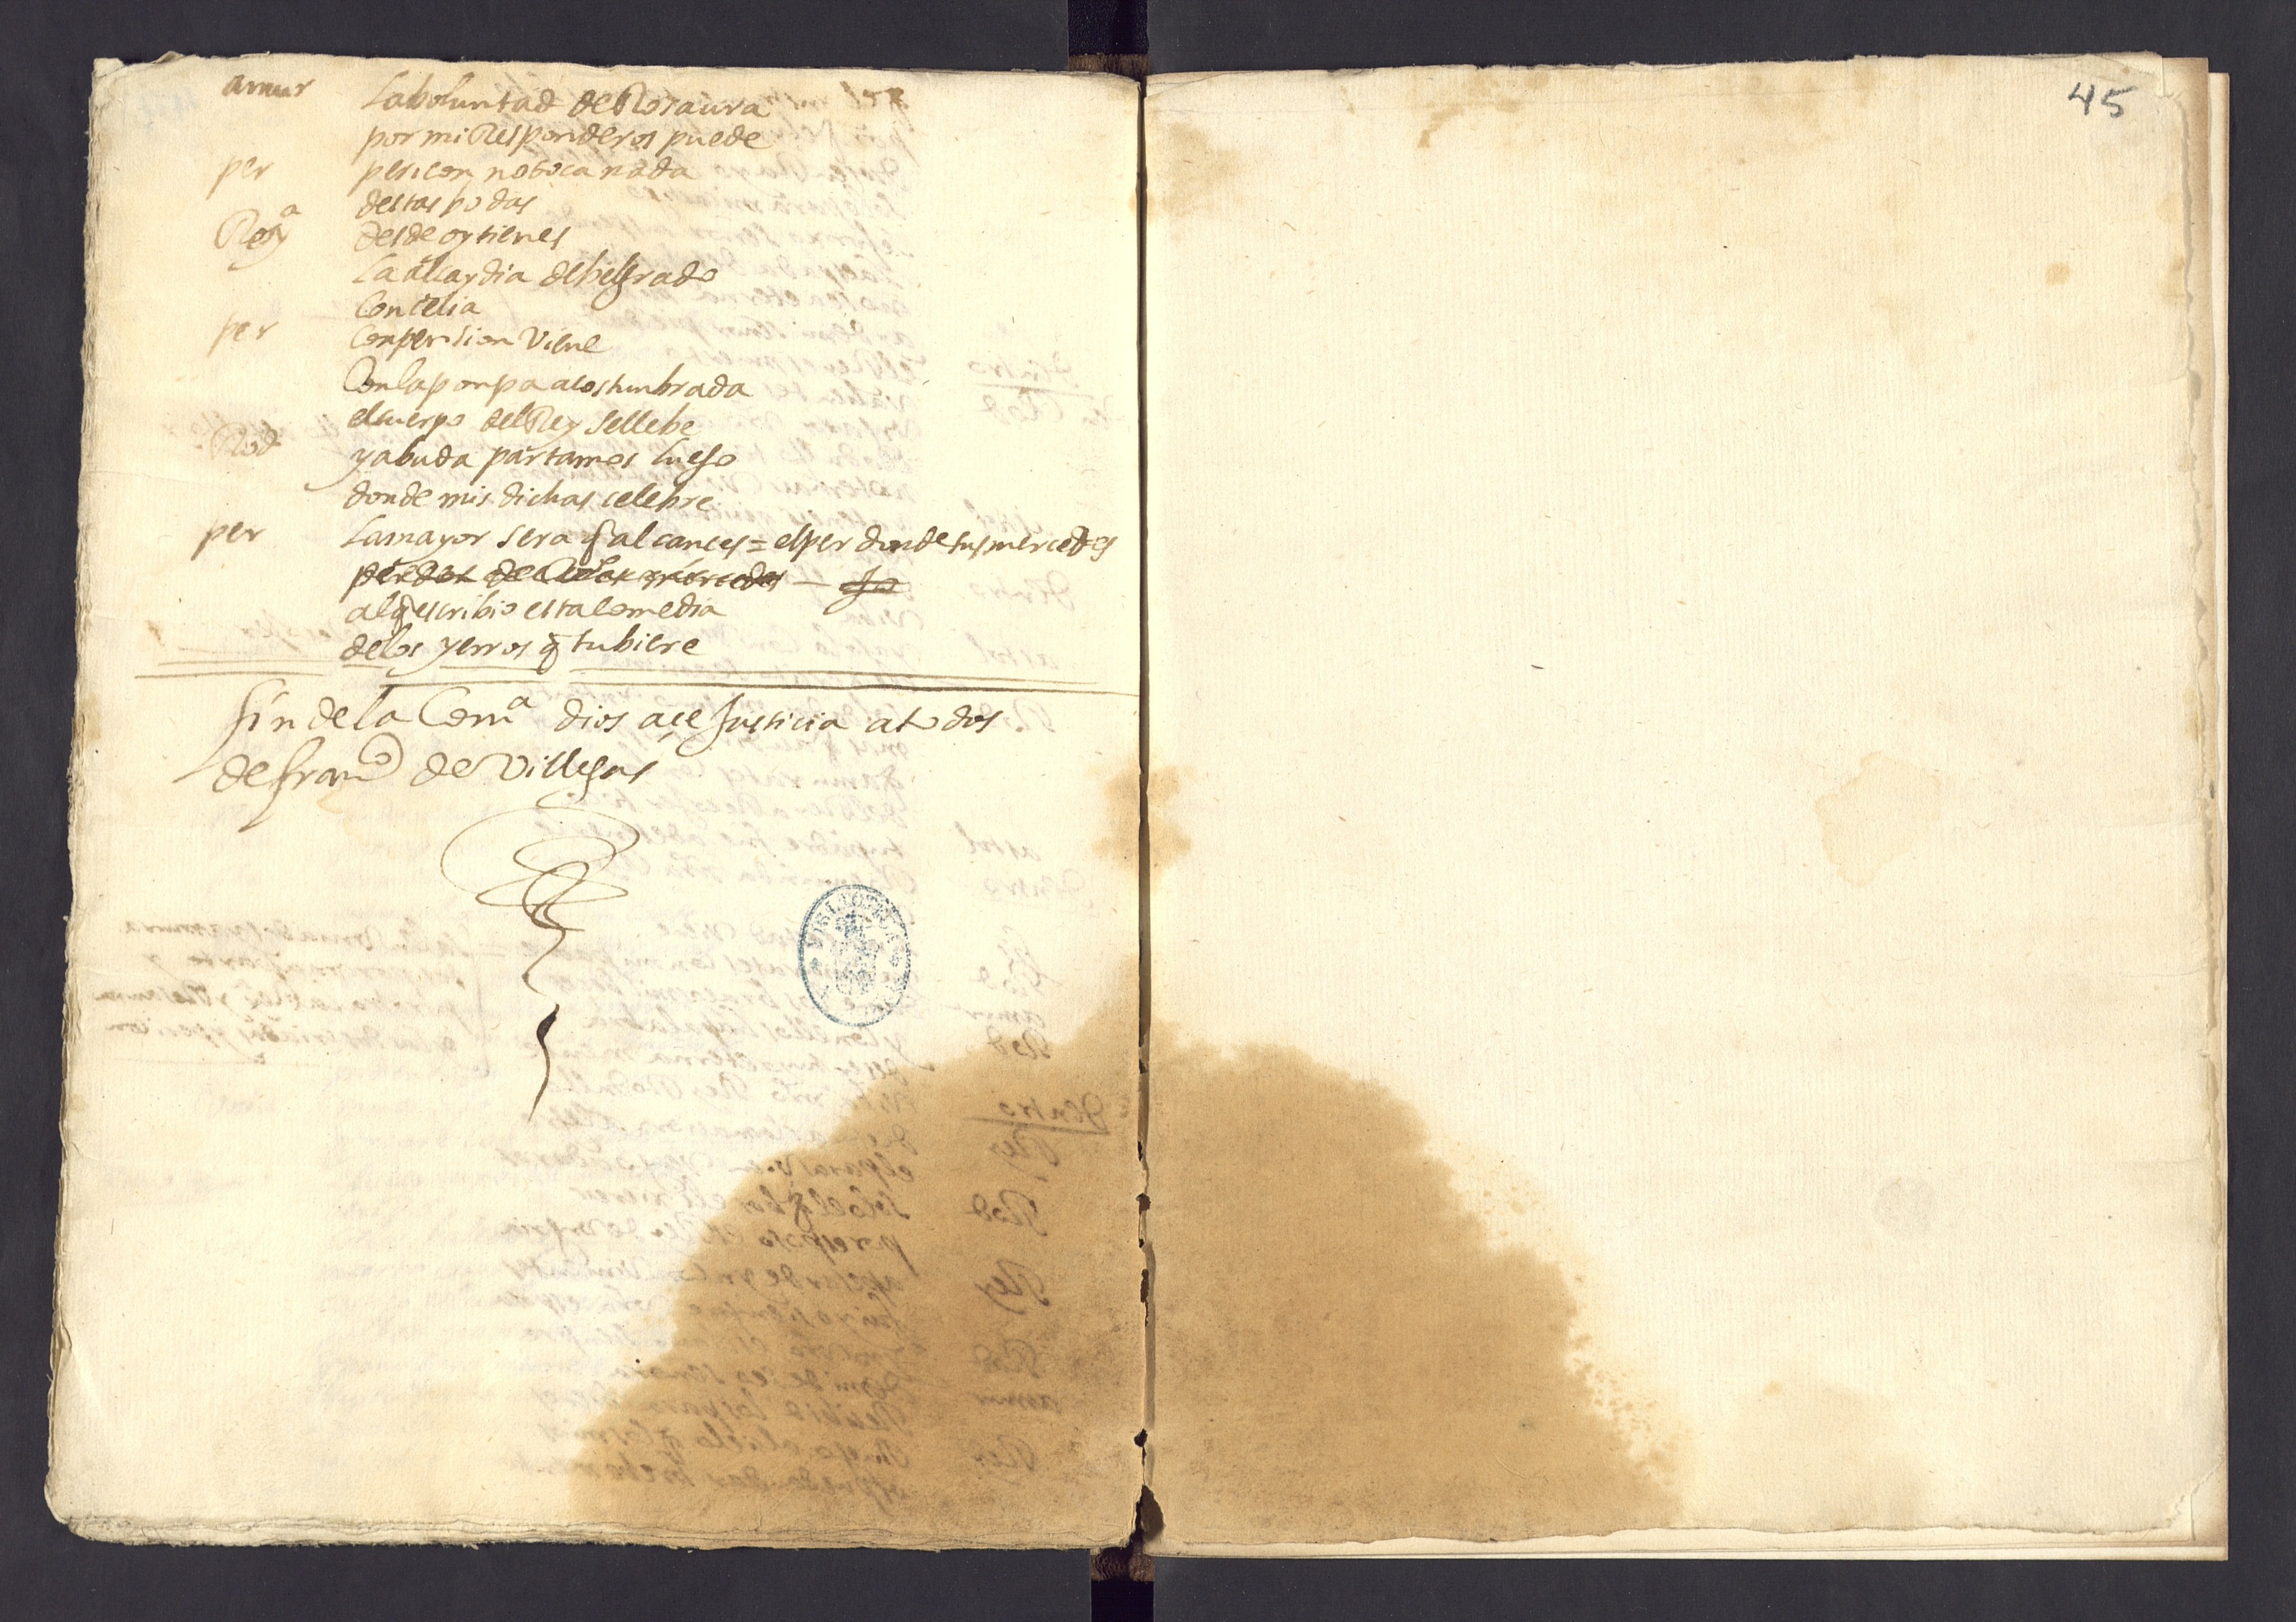 45
amur la boluntad de Rosaura
por mi Responderos puede
per pericon no toca nada
destas bodas
Rosª desde oy tienes
la alcaydia de belgrado
con celia
per con pension viene
con la ponpa acostunbrada
el cuerpo del Rey se llebe
Rod y a buda partamos luego
donde mis dichas celebre
per la mayor sera q̃ alcances = el perdon de tus mercedes
al q̃ escribio esta comedia
de los yerros q̃ tubiere
fin de la Comª dios açe Justicia a todos
de franco de Villegas
BIBLIOTECA